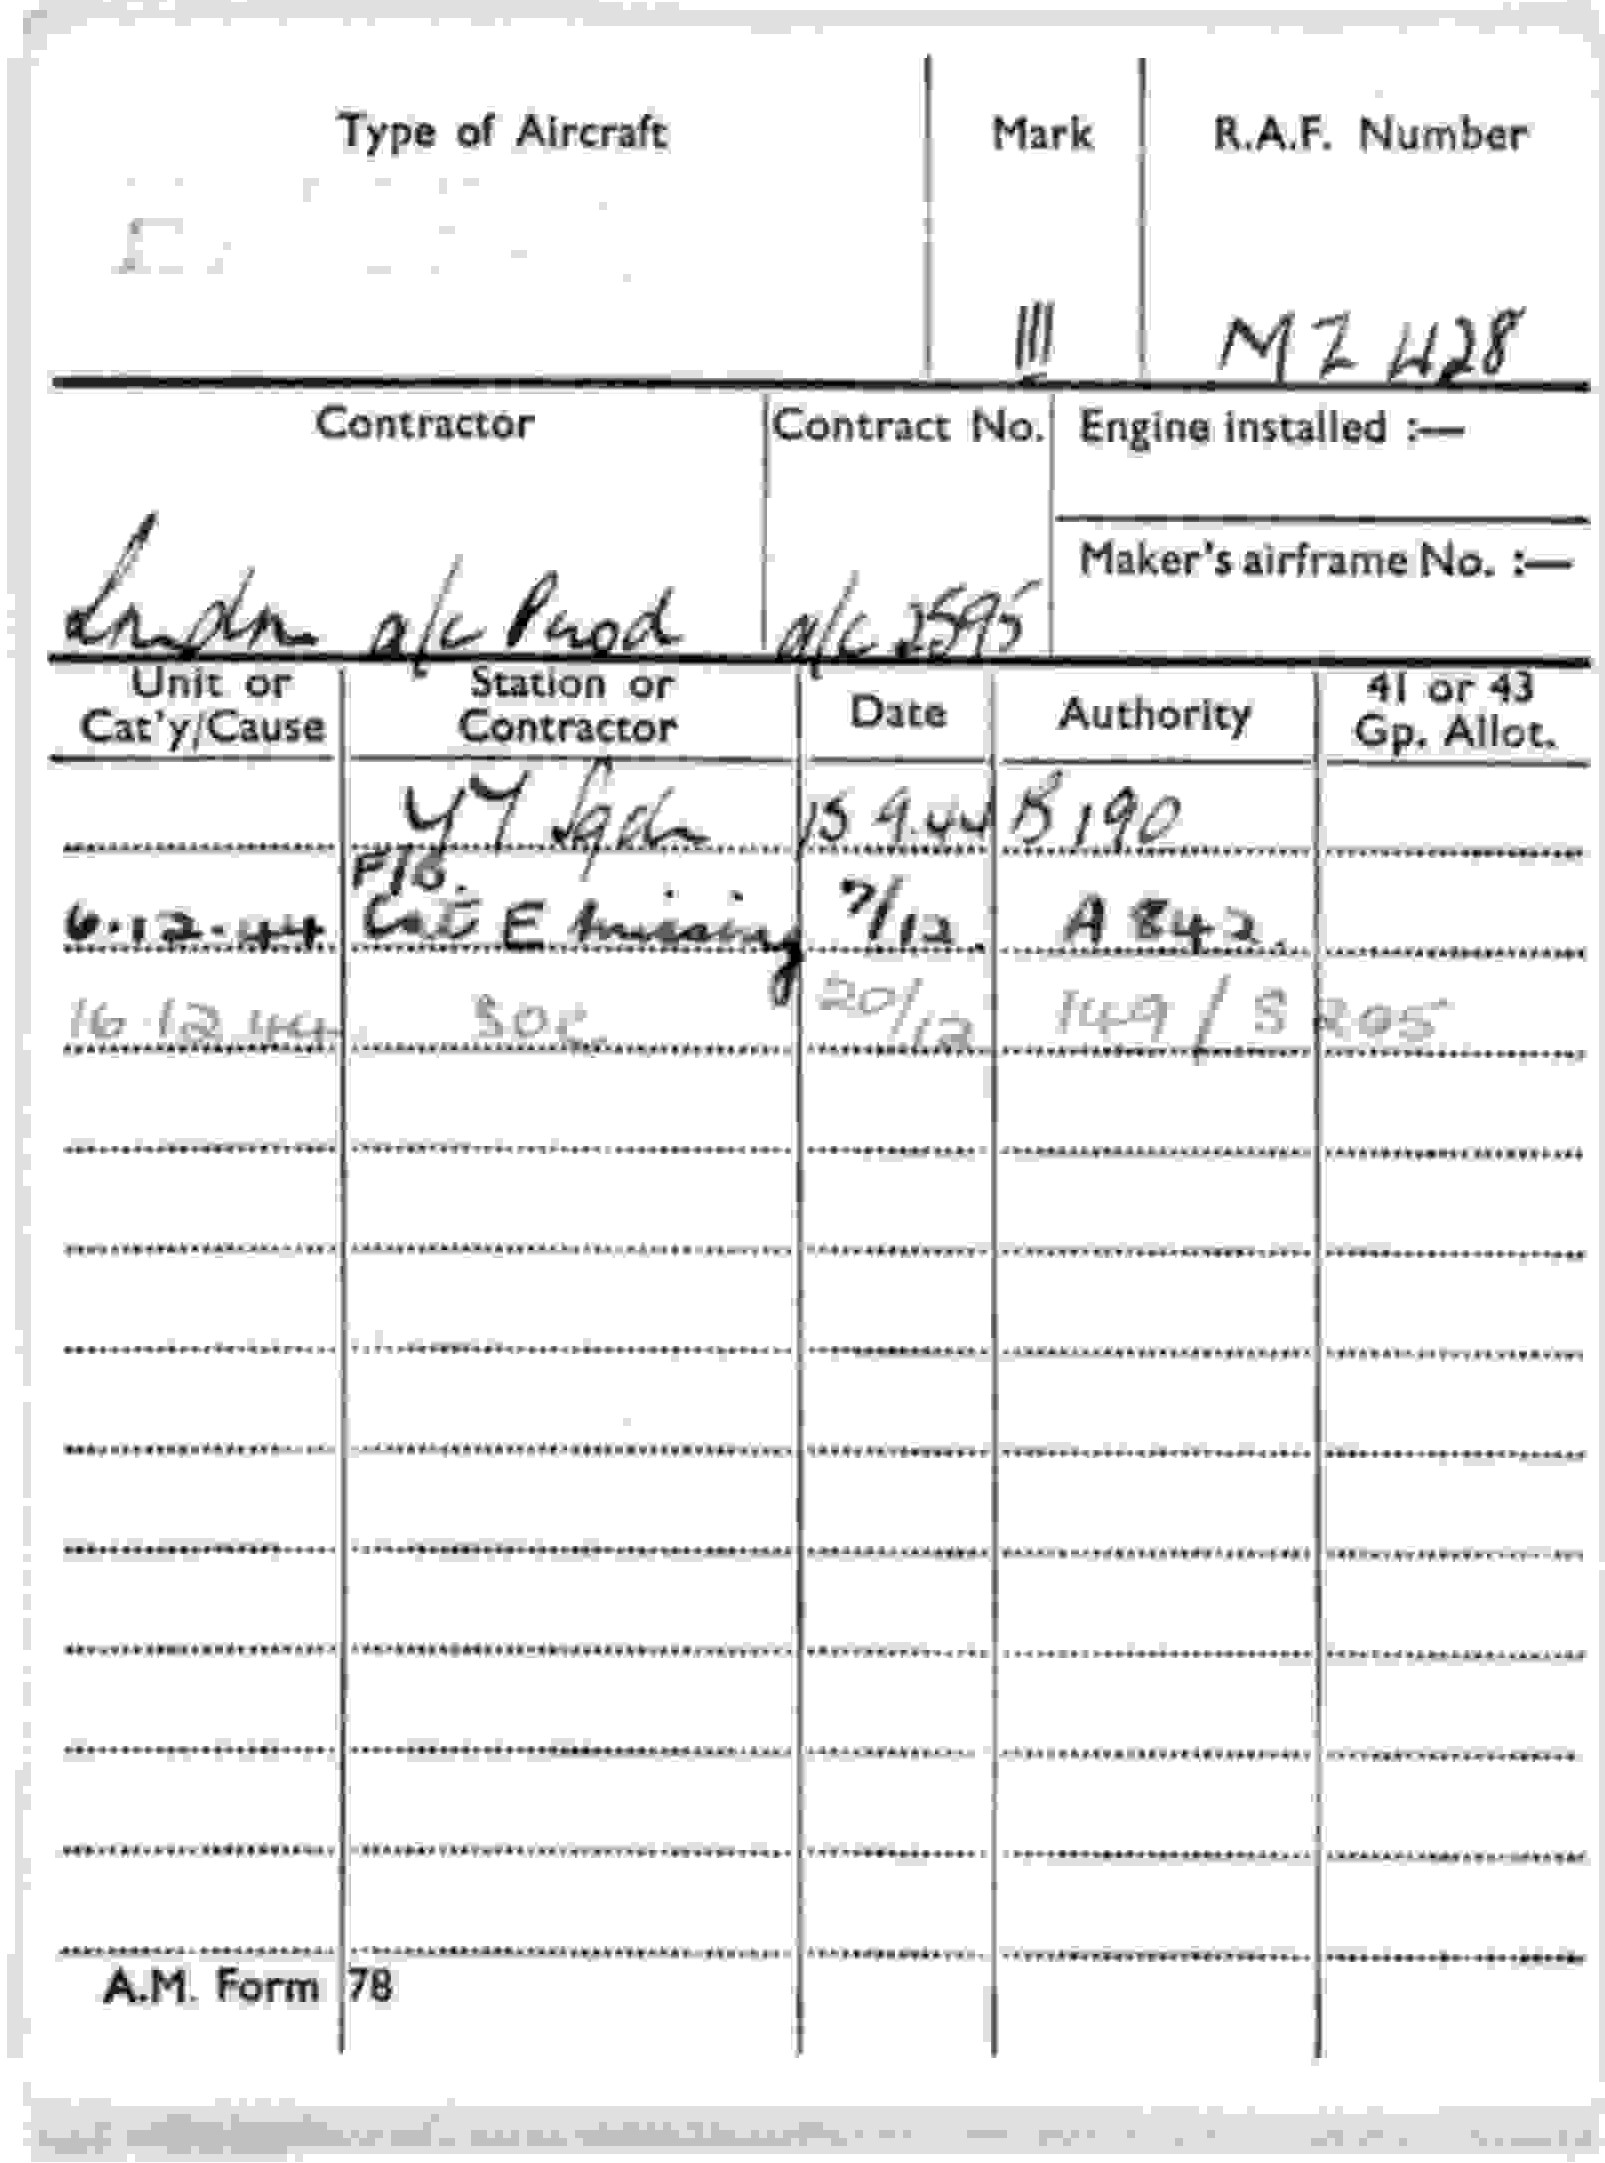 Type of Aircraft Mark R.A.F. Number
III MZ 428
Contractor Contract No. Engine installed :—
Maker's airframe No. :—
Lndn a/c Prod a/c 2595
Unit or Cat'y/Cause Station or Contractor Date Authority 41 or 43 Gp. Allot.
77 Sqdn 15 9.44 B 190
F/B.
6.12.44 Cat E missing 7/12. A 842.
16 12 44 SOC 20/12 149 / S 205
A.M. Form 78